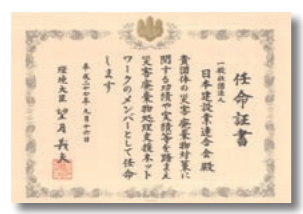 任命証書
一般社団法人
日本建設業連合会 殿
貴団体の災害廃棄物対策に
関する功績や実績等を踏まえ
災害廃棄物処理支援ネット
ワークのメンバーとして任命
します
平成二十七年九月十六日
環境大臣 望月義夫